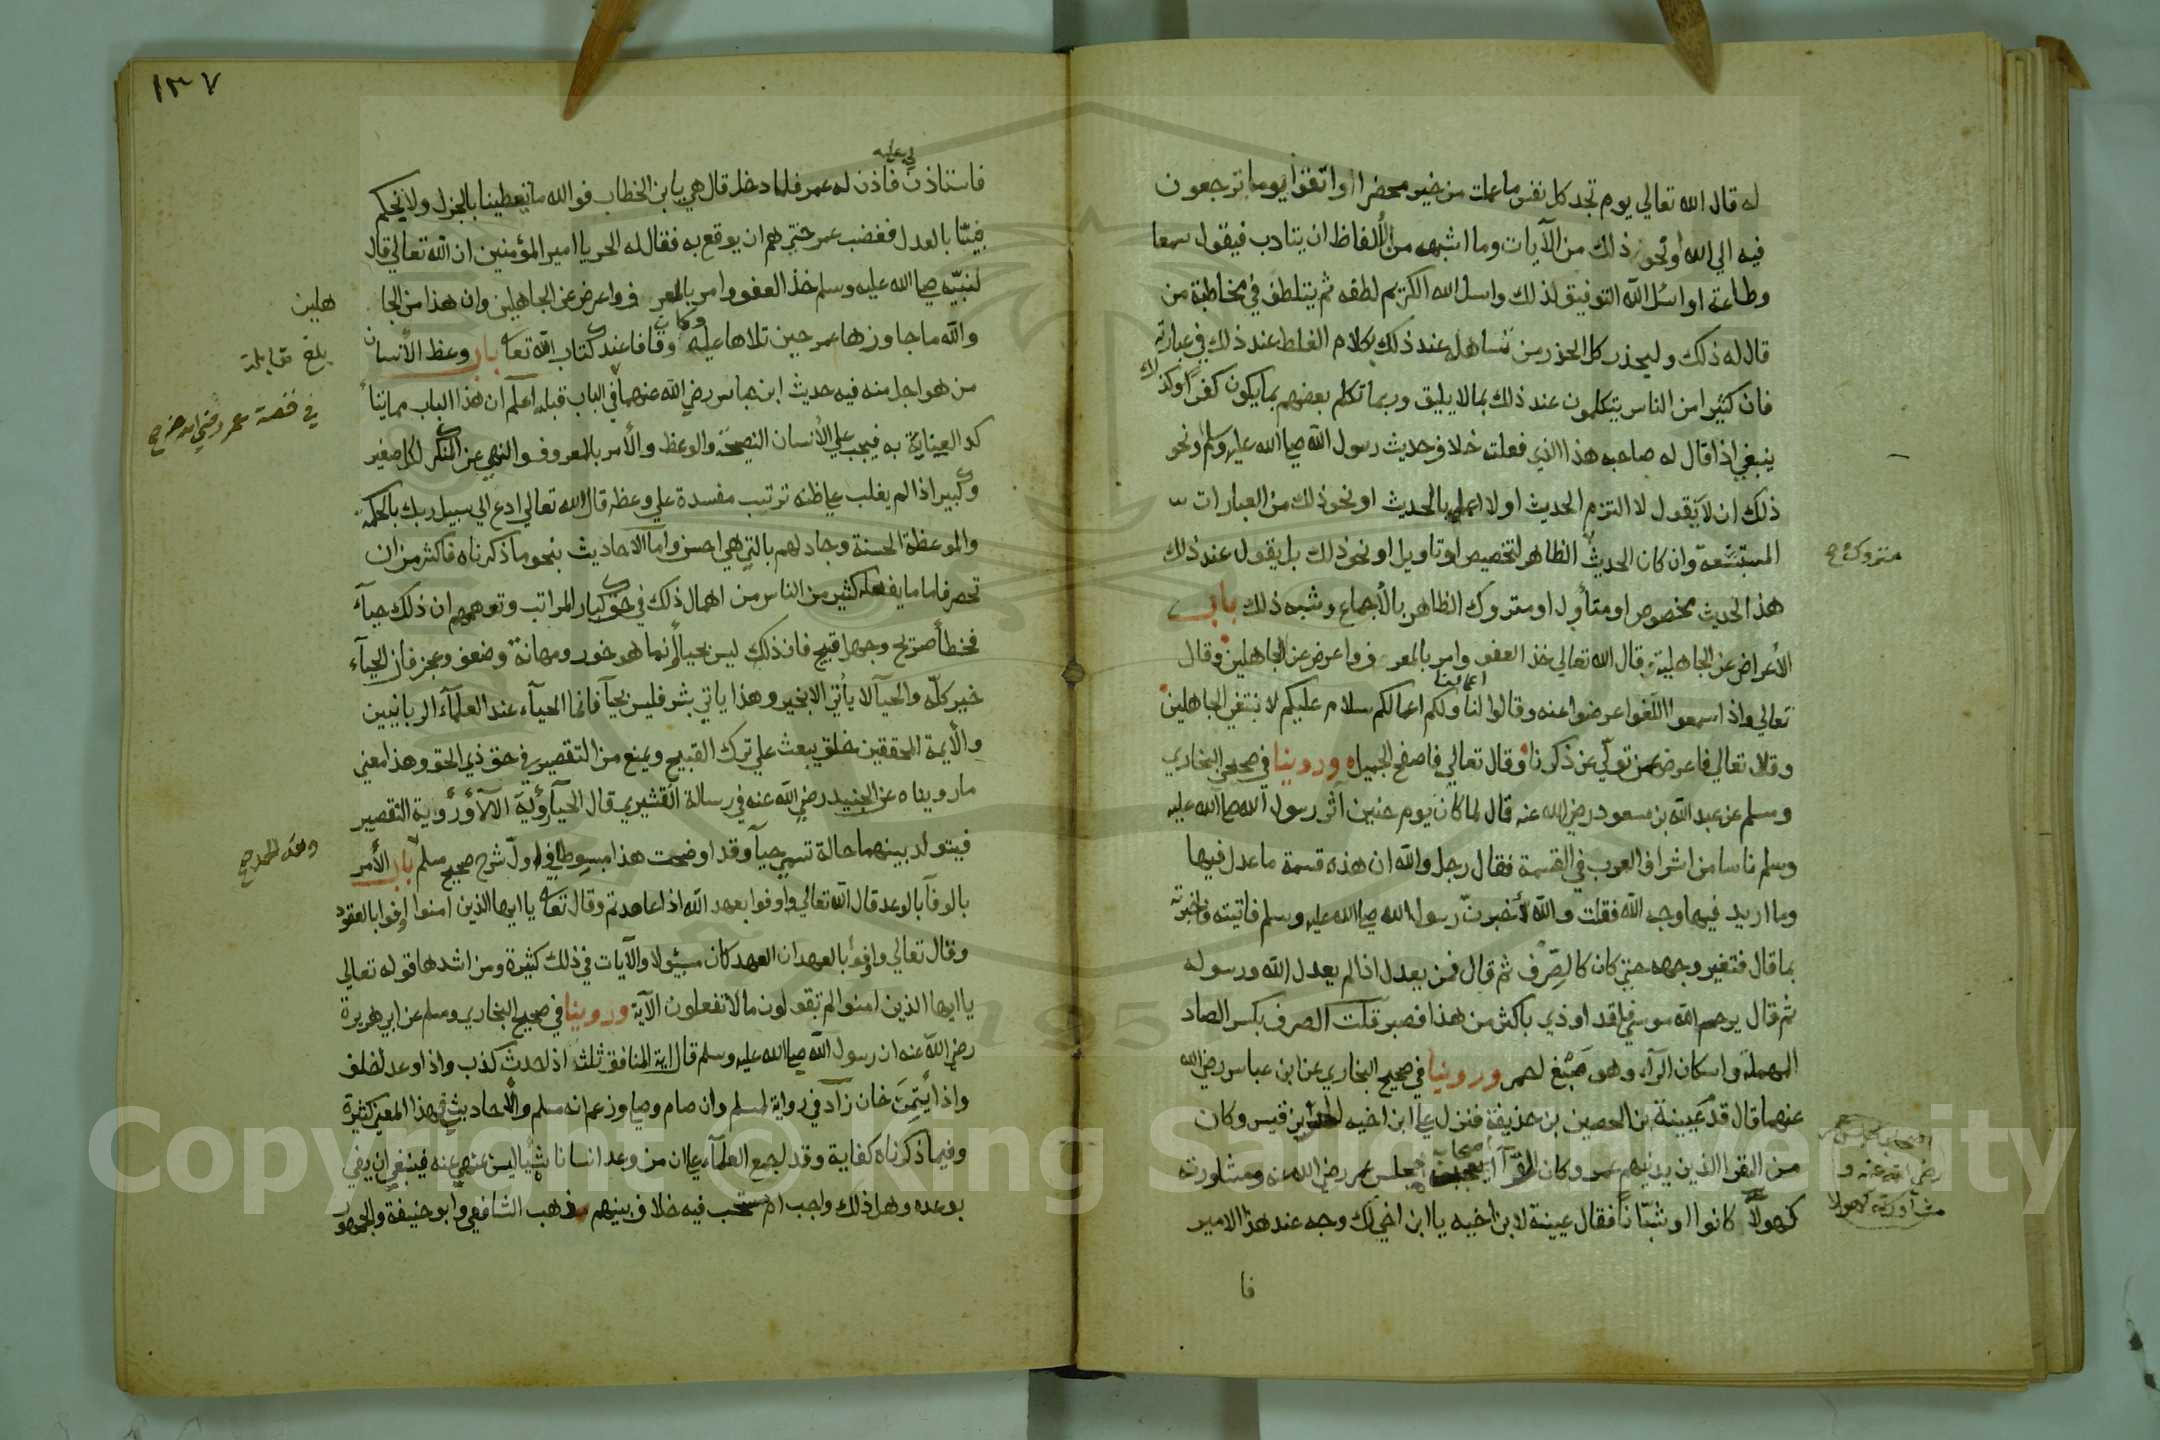 له قال الله تعالي يوم تجد كل نفس ما عملت من خير محضرا او اتقوا يوما ترجعون
فيه الي الله او نحو ذلك من الآيات وما اشبهه من الألفاظ ان يتادب فيقول سمعا
وطاعة او اسئل الله التوفيق لذلك واسل الله الكريم لطفه ثم يتلطف في مخاطبة من
قال له ذلك وليحذر كل الحذر من تساهله عند ذلك بكلام الغلط عند ذلك في عبارته
فان كثيرا من الناس يتكلمون عند ذلك بما لا يليق وربما تكلم بعضهم بما يكون كفرا وكذلك
ينبغي اذا قال له صاحبه هذا الذي فعلته خلاف حديث رسول الله صلى الله عليه وسلم ونحو
ذلك ان لا يقول لا التزم الحديث او لا اعمل بالحديث او نحو ذلك من العبارات
المستبشعة وان كان الحديث الظاهر لتخصيص او تاويل او نحو ذلك بل يقول عند ذلك
متروك صح
هذا الحديث مخصوص او متأول او متروك الظاهر بالأجماع وشبه ذلك باب
الأعراض عن الجاهلية قال الله تعالي خذ العفو وامر بالمعرف واعرض عن الجاهلين وقال
تعالي واذا سمعوا اللغوا عرضوا عنه وقالوا لنا اعمالنا ولكم اعمالكم سلام عليكم لا نبتغي الجاهلين
وقال تعالي فاعرض عن من تولي عن ذكرنا وقال تعالي فاصفح الجميل وروينا في صحيحي البخاري
ومسلم عن عبد الله بن مسعود رضي الله عنه قال لما كان يوم حنين آثر رسول الله صلى الله عليه
وسلم ناسا من اشراف العرب في القسمة فقال رجل والله ان هذه قسمة ما عدل فيها
وما اريد فيها وجه الله فقلت والله لأخبرن رسول الله صلى الله عليه وسلم فاتيته واخبرته
بما قال فتغير وجهه حتي كان كالصرف ثم قال فمن يعدل اذا لم يعدل الله ورسوله
ثم قال يرحم الله موسي لقد اوذي باكثر من هذا فصبر قلت الصرف بكسر الصاد
المهملة واسكان الرآء وهو صبغ احمر وروينا في صحيح البخاري عن ابن عباس رضي الله
عنهما قال قدم عيينة بن الحصين بن حذيفة فنزل علي ابن اخيه الحر بن قيس وكان
من النفر الذين يدنيهم عمر وكان القرآء اصحاب مجلس عمر رضي الله عنه ومشاورته
اصحاب مجلس عمر
رضي الله عنه و
مشاورته كهولا
كهولا كانوا او شبانا فقال عيينة لابن اخيه يا ابن اخي لك وجه عند هذا الامير
فا
١٣٧
فاستاذن لي عليه فاذن له عمر فلما دخل قال هي يا بن الخطاب فوالله ما تعطينا بالجزل ولا تحكم
فينا بالعدل فغضب عمر حتي هم ان يوقع به فقال له الحر يا امير المؤمنين ان الله تعالي قال
لنبيه صلى الله عليه وسلم خذ العفو وامر بالمعرف واعرض عن الجاهلين وان هذا من الجا
هلين
والله ما جاوزها عمر حين تلاها عليه وكان وقافا عند كتاب الله تعالى باب وعظ الأنسان
بلغ مقابلة
من هو اجل منه فيه حديث ابن عباس رضي الله عنهما في الباب قبله اعلم ان هذا الباب مما يتأ
في قصة عمر رضي الله عنه صح
كد العناية به فيجب علي الأنسان النصيحة والوعظ والأمر بالمعروف والنهي عن المنكر لكل صغير
وكبير اذا لم يغلب علي ظنه ترتب مفسدة علي وعظه قال الله تعالي ادع الي سبيل ربك بالحكمة
والموعظة الحسنة وجادلهم بالتي هي احسن واما الآحاديث بنحو ما ذكرناه فاكثر من ان
تحصر فاما ما يفعله كثير من الناس من اهمال ذلك في حق كبار المراتب وتوهمهم ان ذلك حيآء
فخطأ صريح وجهل قبيح فان ذلك ليس بحيا وإنما هو خور ومهانة وضعف وعجز فان الحيآء
خير كله والحيآ لا يأتي الا بخير وهذا ياتي بشر فليس بحيآ فانما الحيآء عند العلمآء الربانيين
والأيمة المحققين خلق يبعث علي ترك القبيح ويمنع من التقصير في حق ذي الحق وهذا معني
ما رويناه عن الجنيد رضي الله عنه في رسالة القشيري قال الحيآ رؤية الآلآء ورؤية التقصير
فيتولد بينهما حالة تسمي حيآ وقد اوضحت هذا مبسوطا في اول شرح صحيح مسلم باب الأمر
ولله الحمد صح
بالوفآ بالوعد قال الله تعالي واوفوا بعهد الله اذا عاهدتم وقال تعالى يا ايها الذين امنوا اوفوا بالعقود
وقال تعالي واوفوا بالعهد ان العهد كان مسئولا والآيات في ذلك كثيرة ومن اشدها قوله تعالي
يا ايها الذين امنوا لم تقولون ما لا تفعلون الآية وروينا في صحيح البخاري ومسلم عن ابي هريرة
رضي الله عنه ان رسول الله صلى الله عليه وسلم قال اية المنافق ثلث اذا حدث كذب واذا وعد اخلف
واذا أيتمن خان زآد في رواية لمسلم وان صام وصلي وزعم انه مسلم والأحاديث في هذا المعني كثيرة
وفيما ذكرناه كفاية وقد اجمع العلمآء علي ان من وعد انسانا شيا ليس عنهي عنه فينبغي ان يفي
بوعده وهل ذلك واجب ام مستحب فيه خلاف بينهم مذهب الشافعي وابو حنيفة والجمهور
Copyright © King Saud University
1957